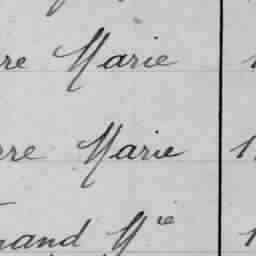 rre Marie
rre Marie
nand Mie